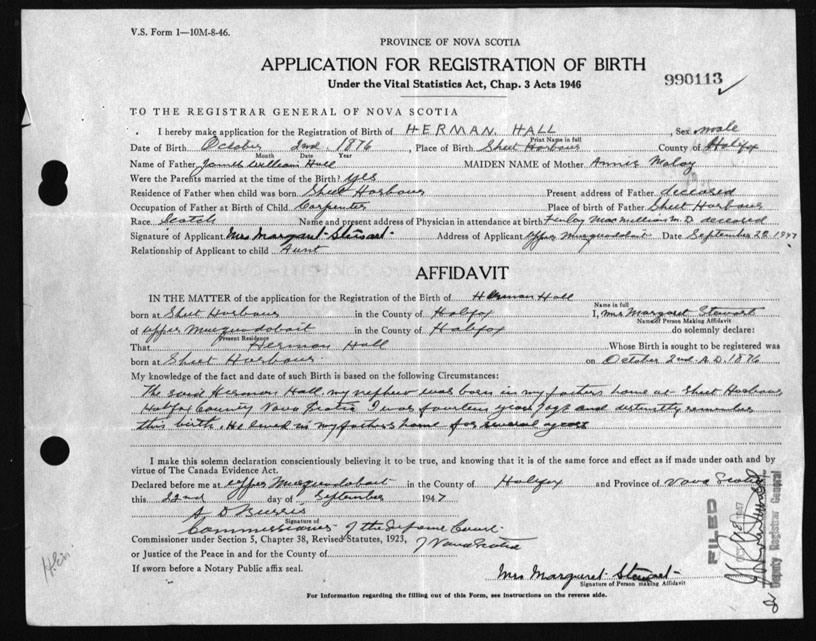 V.S. Form 1—10M-8-46.
PROVINCE OF NOVA SCOTIA
APPLICATION FOR REGISTRATION OF BIRTH
Under the Vital Statistics Act, Chap. 3 Acts 1946
990113
TO THE REGISTRAR GENERAL OF NOVA SCOTIA
I hereby make application for the Registration of Birth of HERMAN. HALL, Sex male
Print Name in full
Date of Birth October 2nd. 1876, Place of Birth Sheet Harbour County of Halifax
Month Date Year
Name of Father James William Hall MAIDEN NAME of Mother Annie Maloy
Were the Parents married at the time of the Birth? yes
Residence of Father when child was born Sheet Harbour Present address of Father deceased
Occupation of Father at Birth of Child Carpenter Place of birth of Father Sheet Harbour
Race Scotch Name and present address of Physician in attendance at birth Finlay Macmillian M.D. deceased
Signature of Applicant Mrs Margaret Stewart Address of Applicant Upper Musquodoboit Date September 22. 1947
Relationship of Applicant to child Aunt
AFFIDAVIT
IN THE MATTER of the application for the Registration of the Birth of Herman Hall
Name in full
born at Sheet Harbour in the County of Halifax I, Mrs Margaret Stewart
Name of Person Making Affidavit
of Upper Musquodoboit in the County of Halifax do solemnly declare:
Present Residence
That Herman Hall Whose Birth is sought to be registered was
born at Sheet Harbour. on October 2nd A.D. 1876
My knowledge of the fact and date of such Birth is based on the following Circumstances:
The said Herman Hall, my nephew was born in my fathers home at Sheet Harbour
Halifax County Nova Scotia I was fourteen years of age and distinctly remember
this birth. He lived in my fathers home for several years
I make this solemn declaration conscientiously believing it to be true, and knowing that it is of the same force and effect as if made under oath and by
virtue of The Canada Evidence Act.
Declared before me at Upper Musquodoboit in the County of Halifax and Province of Nova Scotia
this 22nd day of September 1947
A D Burris
Signature of
Commissioner of the Supreme Court
Commissioner under Section 5, Chapter 38, Revised Statutes, 1923, of Nova Scotia
or Justice of the Peace in and for the County of
If sworn before a Notary Public affix seal.
Mrs Margaret Stewart
Signature of Person making Affidavit
For Information regarding the filling out of this Form, see instructions on the reverse side.
FILED
Deputy Registrar General